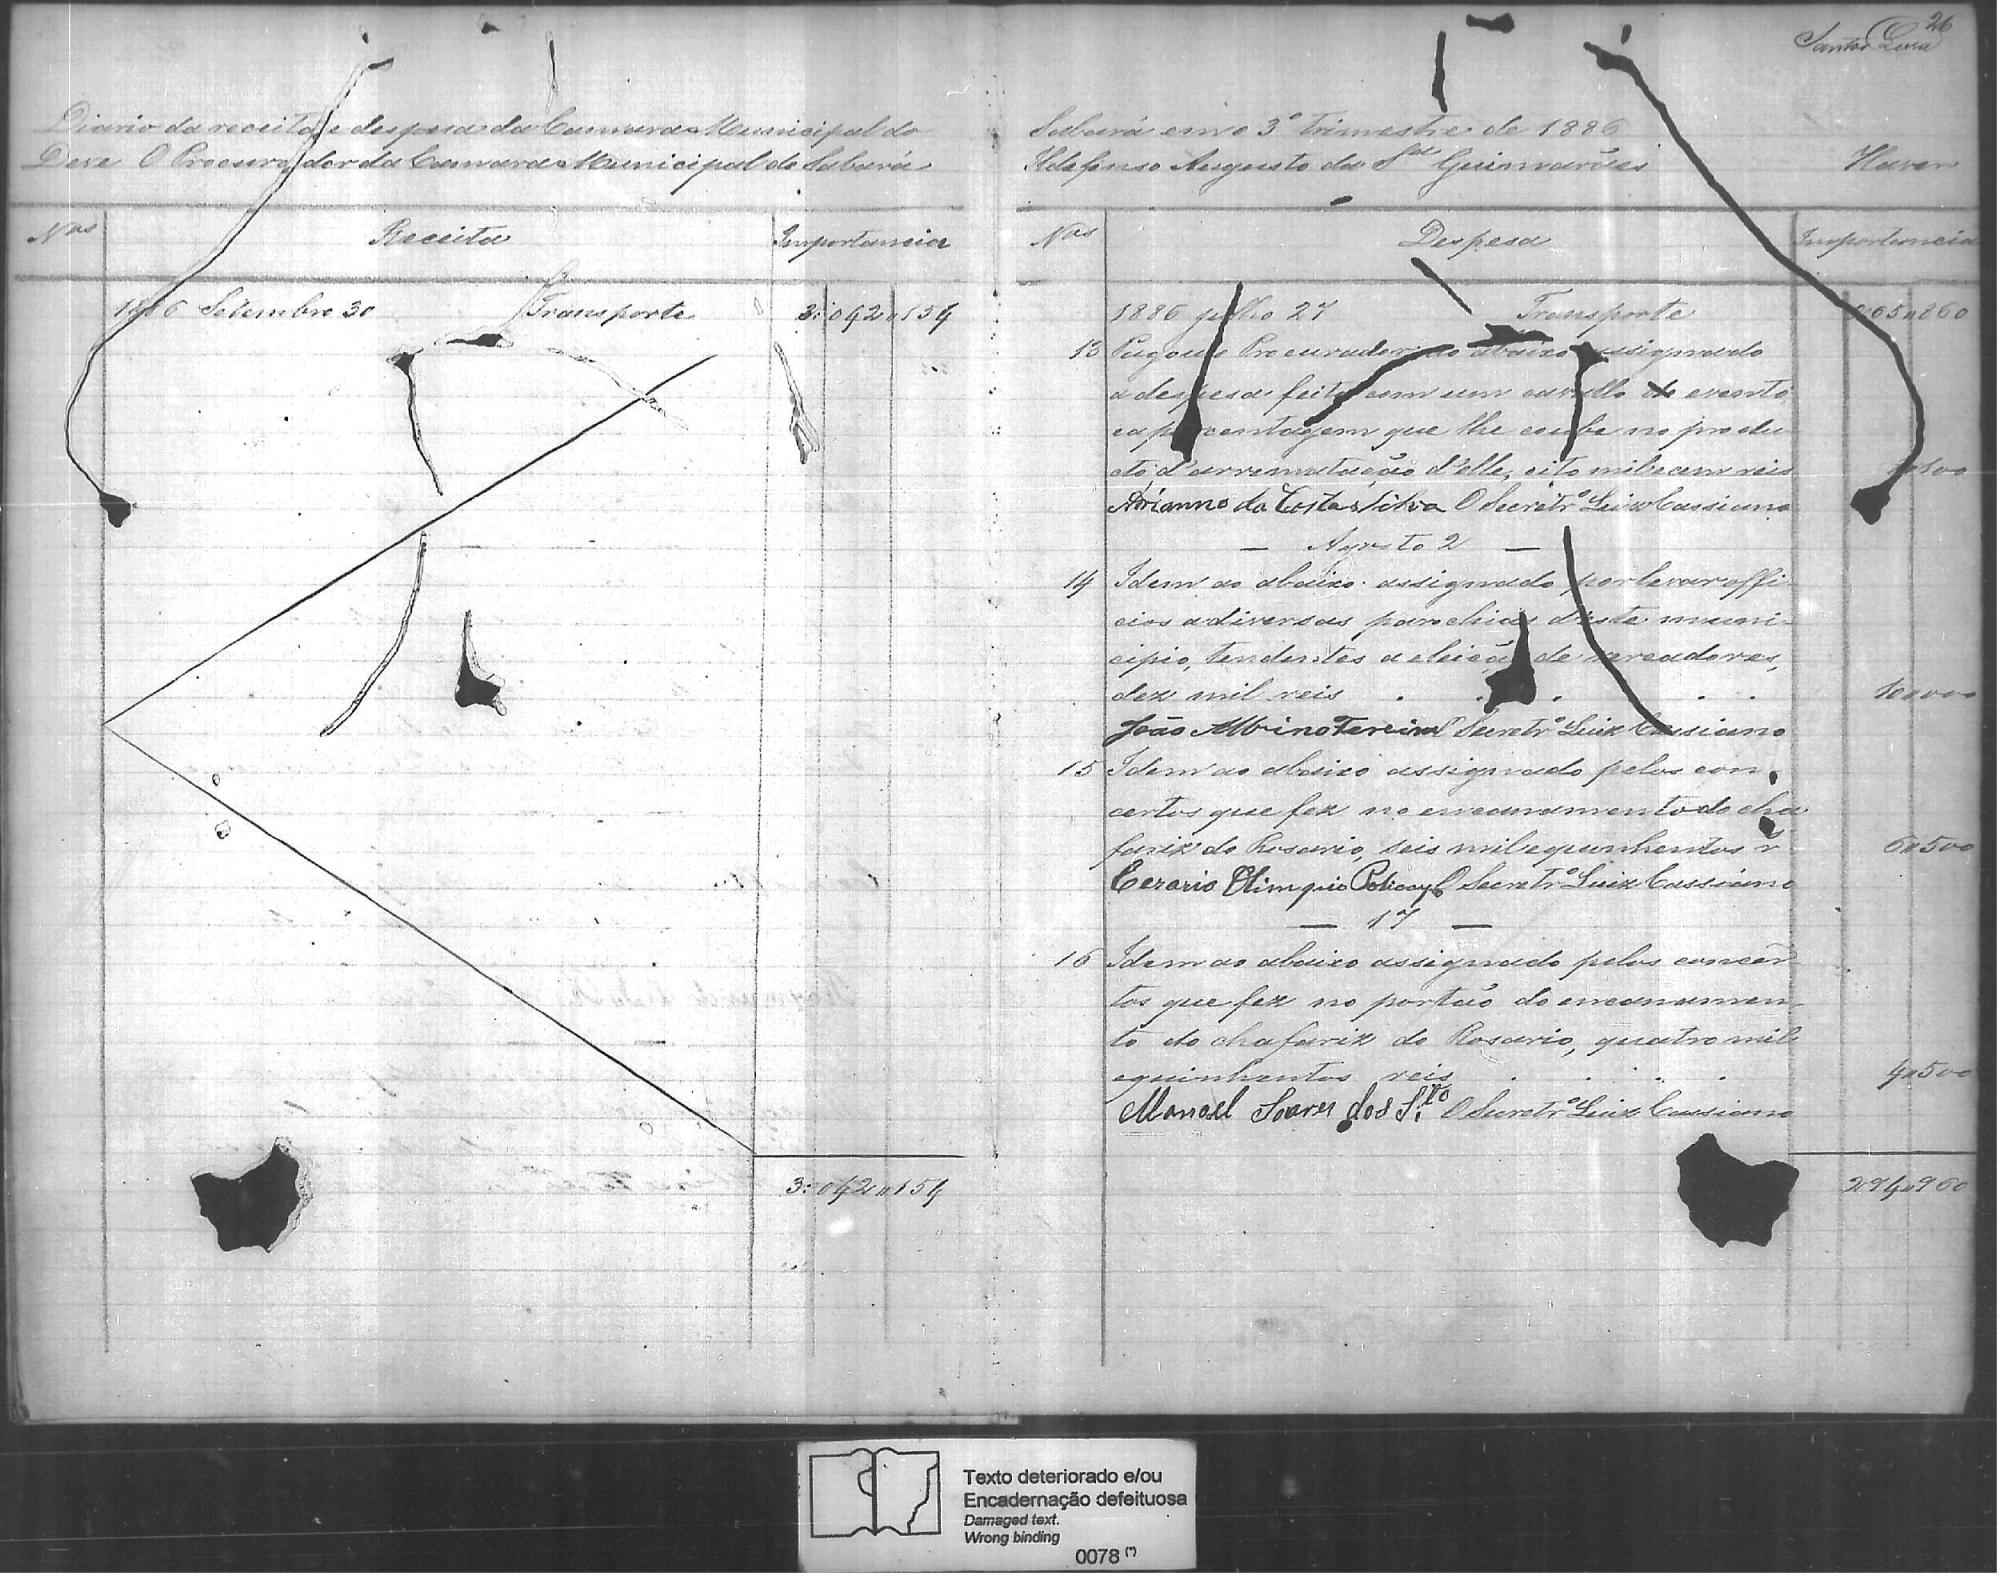 26
Diario da receita e despesa da Camara Municipal do
Deve O Procurador da Camara Municipal do Sabará
Nos Receita Importancia
1886 Setembro 30 Transporte 3:042"154
3:042"154
Sabará em o 3º Trimestre de 1886
Ildefonso Augusto da Sa Guimarães Haver
Nos Despesa Importancia
1886 julho 27 Transporte 65"860
13 Pagou o Procurador ao abaixo assignado
a despesa feita com um cavallo de evento
e a porcentagem que lhe coube no produ
cto, d'arrematação d'elle, oito mil e cem reis
da Costa e Silva O Secretrº Luiz Cassiano
— Agosto 2 —
14 Idem ao abaixo assignado por levar offi
cios a diversas parochias d'este muni-
cipio, tendentes a eleição de vereadores,
dez mil reis . . . . . 10"000
João Albino Pereira O Secretrº Luiz Cassiano
15 Idem ao abaixo assignado pelos con-
certos que fez no encanamento do cha
fariz do Rosario, seis mil e quinhentos rs 6"500
Cezario Olimpio O Secretrº Luiz Cassiano
— 17 —
16 Idem ao abaixo assignado pelos concer
tos que fez no portão do encanamen-
to do chafariz do Rosario, quatro mil
e quinhentos reis . . . . 4"500
Manoel Soares dos Stos O Secretrº Luiz Cassiano
294"960
Texto deteriorado e/ou
Encadernação defeituosa
Damaged text.
Wrong binding
0078 (*)